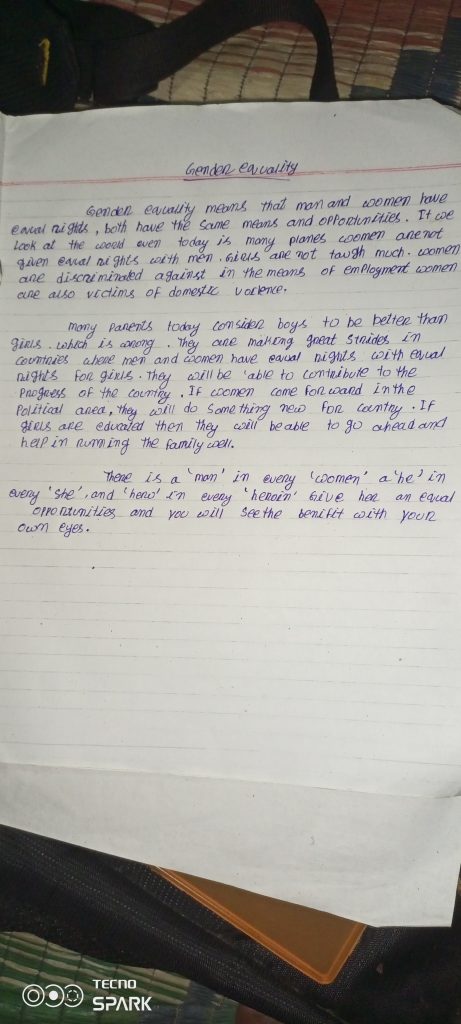 Gender equality
Gender equality means that man and women have
equal rights, both have the same means and opportunities. If we
look at the world even today is many planes women are not
given equal rights with men. Girls are not taugh much. women
are discriminated against in the means of employment women
are also victims of domestic violence.
many parents today consider boys to be better than
girls. which is wrong. They are making great strides in
countries where men and women have equal rights with equal
rights for girls. They will be 'able to contribute to the
progress of the country. If women come forward in the
political area, they will do something new for country. If
girls are educated then they will be able to go ahead and
help in running the family well.
There is a 'man' in every 'women' a 'he' in
every 'she', and 'hero' in every 'heroin' Give her an equal
opportunities and you will see the benifit with your
own eyes.
TECNO
SPARK